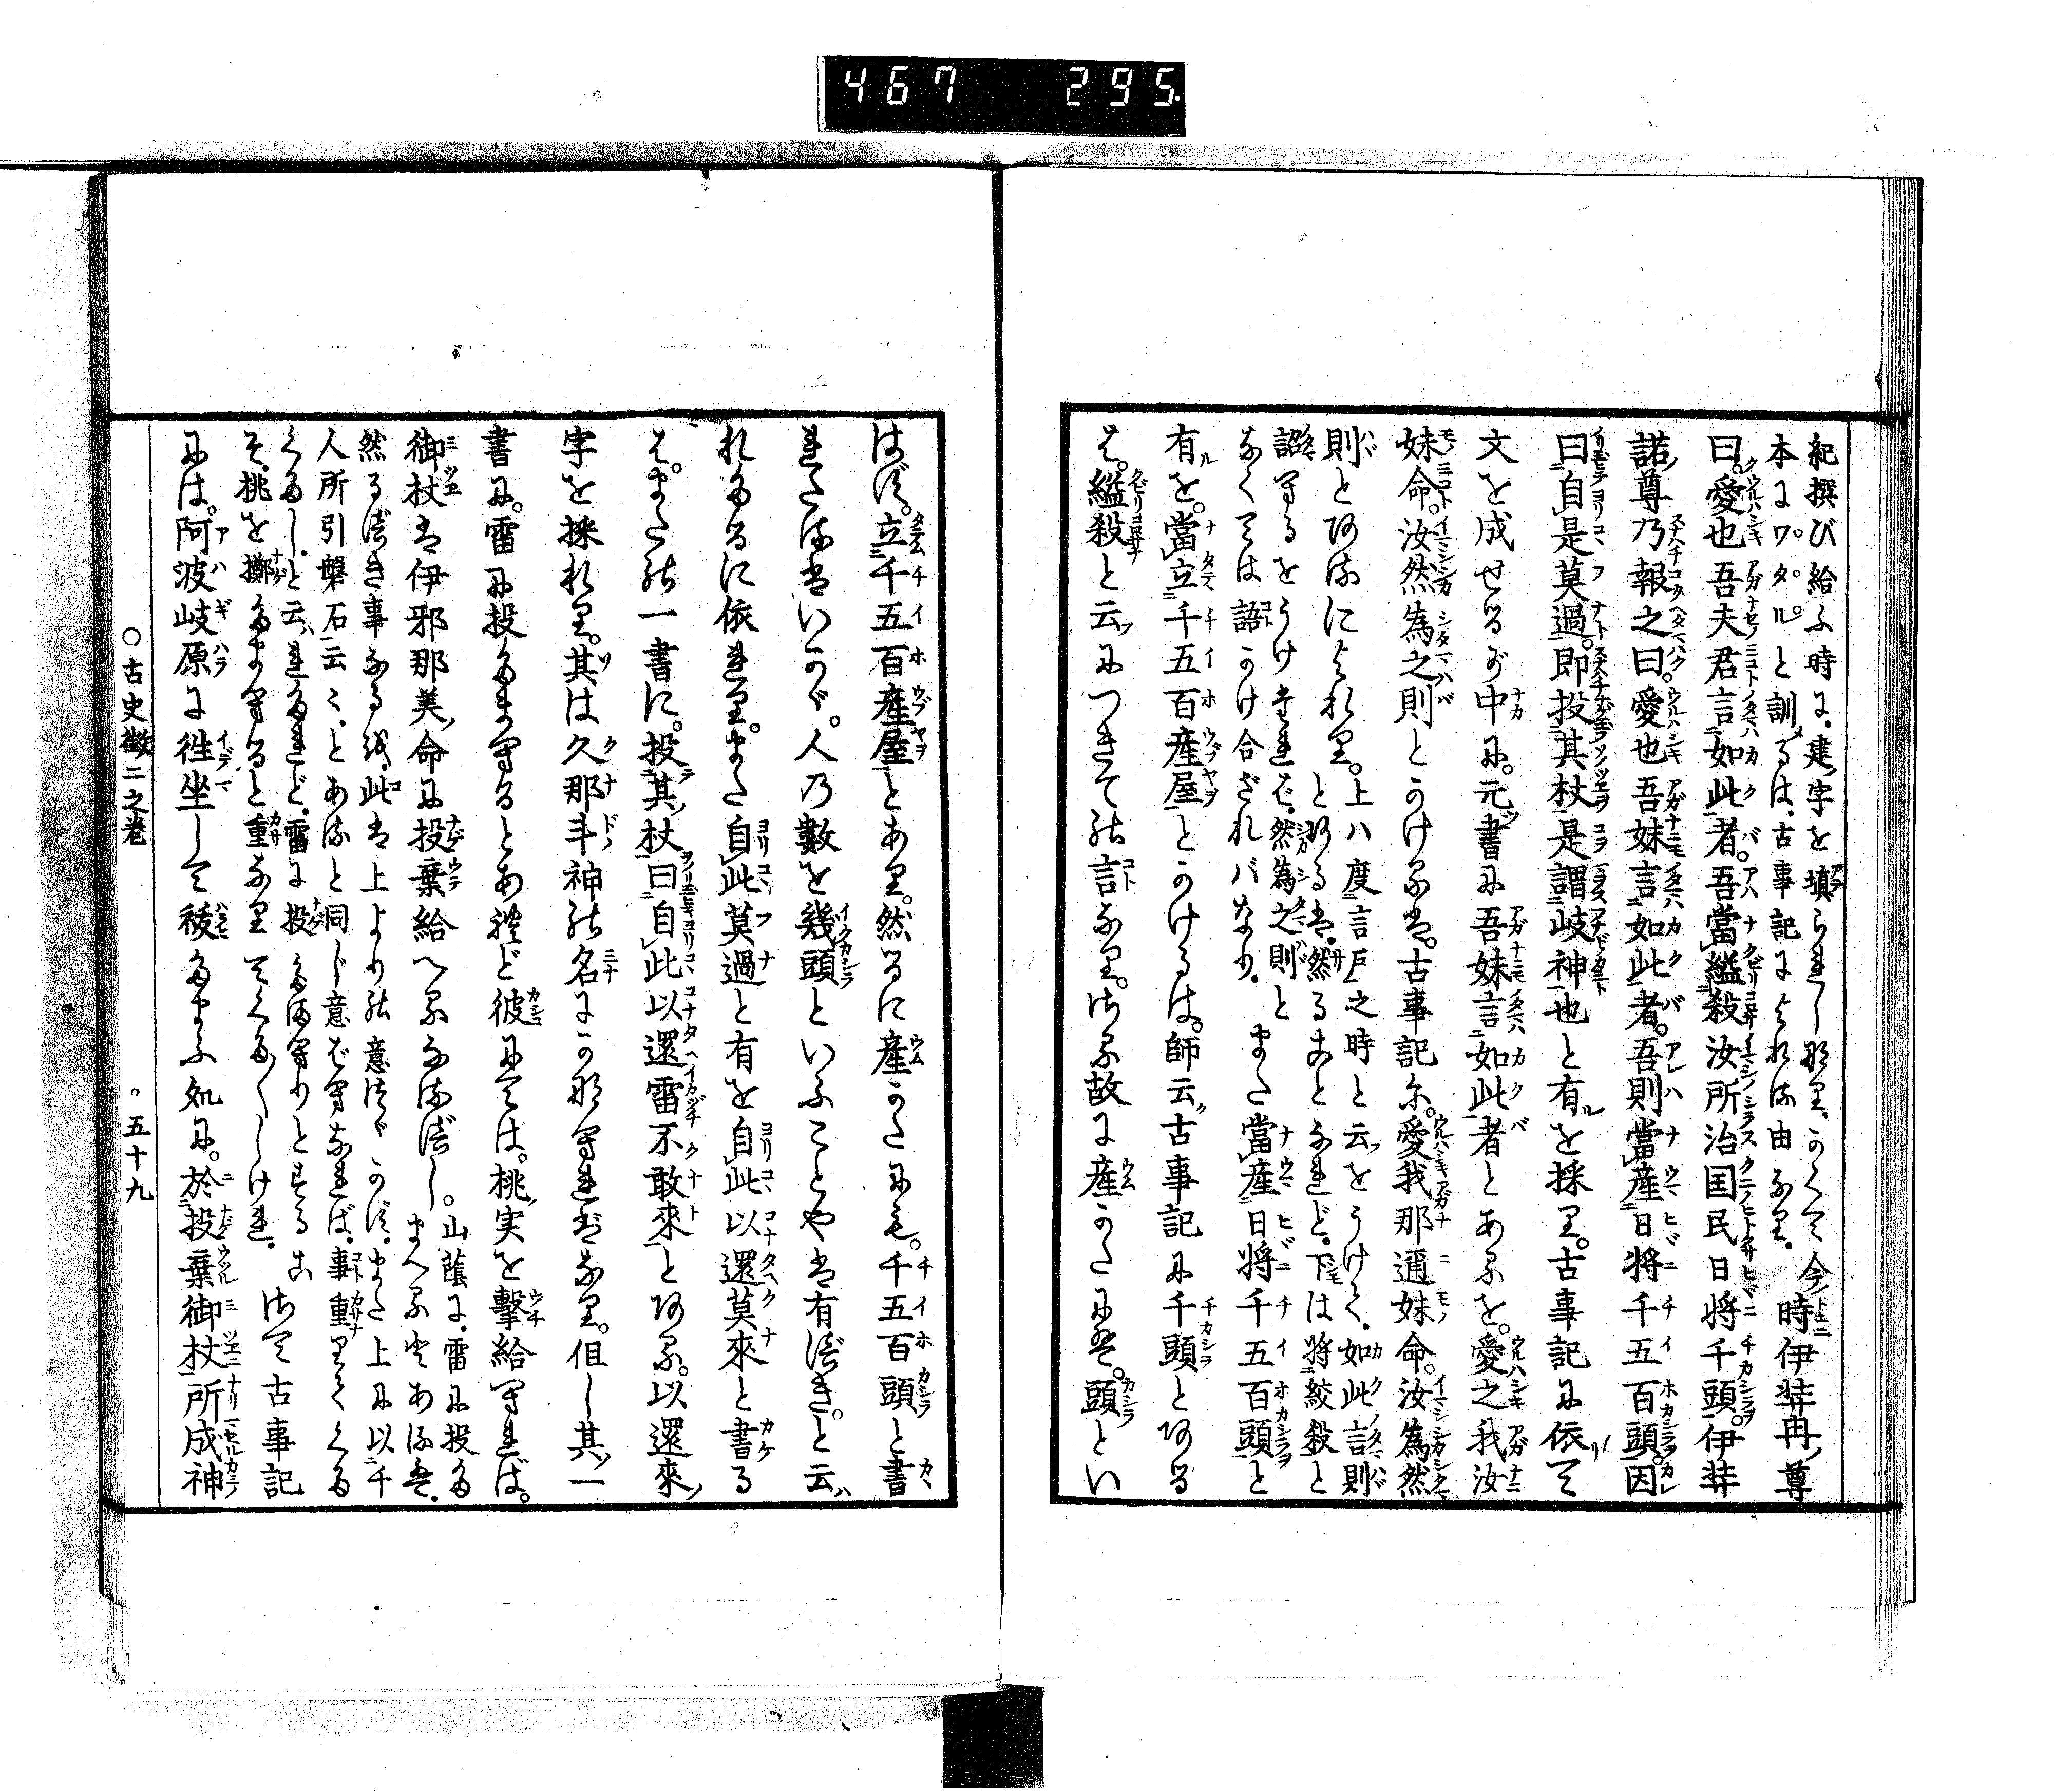 467 295.
紀撰び給ふ時に、建字を塡られしなり、かくて今時伊弉冉尊
本にワタルと訓るは、古事記によれる由なり、
曰。愛也吾夫君言如此者。吾當縊殺汝所治国民日將千頭。伊弉
諾尊乃報之曰。愛也吾妹言如此者。吾則當産日將千五百頭。因
曰自是莫過。即投其杖是謂岐神也と有を採り。古事記に依て
文を成せるが中に。元書に吾妹言如此者とあるを。愛之我汝
妹命。汝然為之則とかけるは。古事記に。愛我那邇妹命。汝為然
則とあるによれり。上ハ度言戸之時と云をうけて、如此言則
とあるは、然ることなれど、下は將絞殺と
詔るをうけたれば、然為之則と
なくては語かけ合ざればなり、また當産日將千五百頭と
有を。當立千五百産屋とかけるは。師云古事記に千頭とある
は。縊殺と云につきての言なり。ける故に産かたには。頭とい
はず。立千五百産屋とあり。然るに産かたにも。千五百頭と書
れたるはいかゞ。人の數を幾頭といふことやは有べき。と云
れたるに依れり。また自此莫過と有を自此以還莫來と書る
は。またの一書に。投其杖曰自此以還雷不敢來とある。以還來
字を採れり。其は久那斗神の名にかなへればなり。但し其一
書に。雷に投たまへるとあれど彼にては。桃実を撃給へれば。
御杖は伊邪那美命に投棄給へるなるべし。山蔭に、雷に投た
まへるとあるは、
然るべき事なるを、此は上よりの意つゞかず、また上に以千
人所引磐石云々、とあると同じ意ばへなれば、事重りてくだ
くだし、と云れたれど、雷に投たまへりとするこ
そ、桃を擲たまへると重なりてくだ〱しけれ、さて古事記
には。阿波岐原に往坐して祓たまふ処に。於投棄御杖所成神
○古史徴二之巻 ○五十九